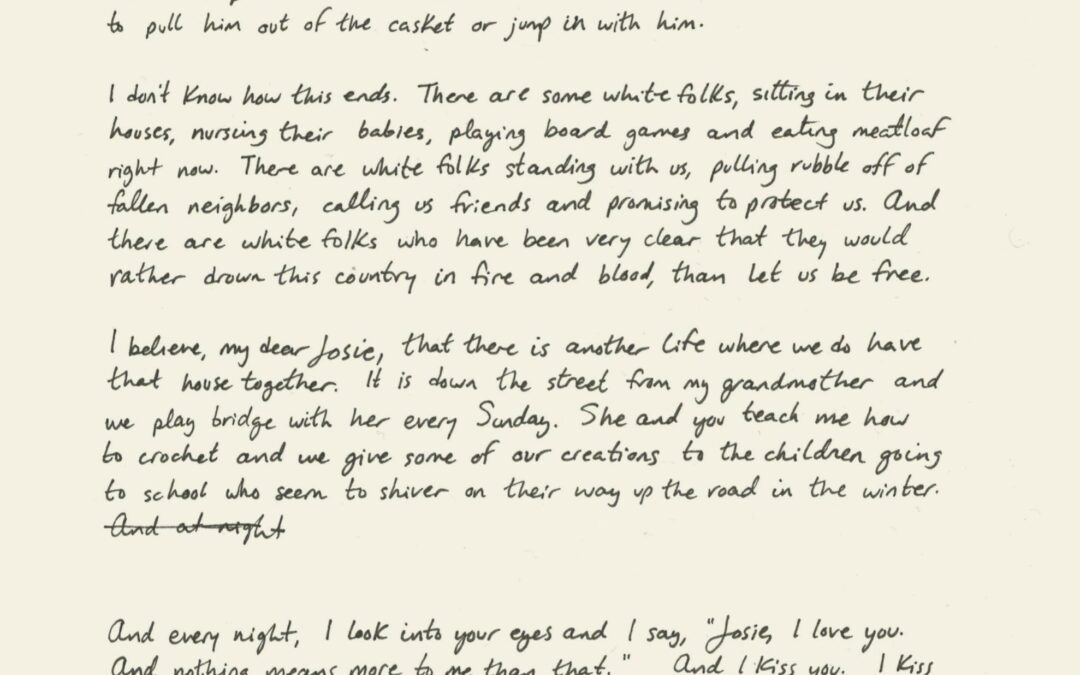 to pull him out of the casket or jump in with him.
I don't know how this ends. There are some white folks, sitting in their
houses, nursing their babies, playing board games and eating meatloaf
right now. There are white folks standing with us, pulling rubble off of
fallen neighbors, calling us friends and promising to protect us. And
there are white folks who have been very clear that they would
rather drown this country in fire and blood, than let us be free.
I believe, my dear Josie, that there is another life where we do have
that house together. It is down the street from my grandmother and
we play bridge with her every Sunday. She and you teach me how
to crochet and we give some of our creations to the children going
to school who seem to shiver on their way up the road in the winter.
And at night
And every night, I look into your eyes and I say, "Josie, I love you.
And nothing means more to me than that." And I kiss you. I kiss